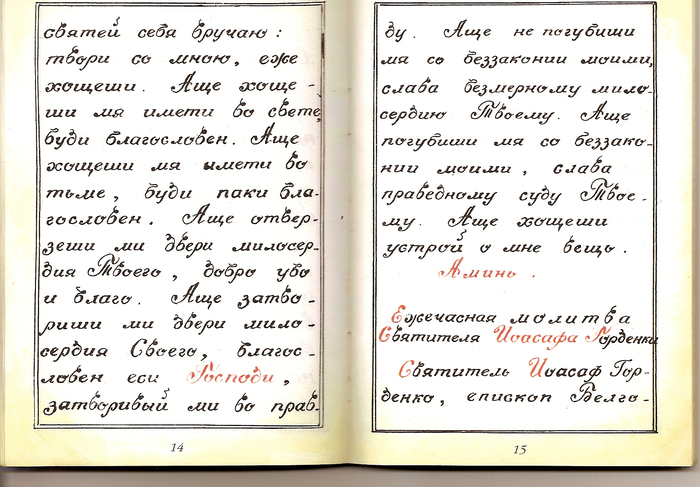 святей себя вручаю:
твори со мною, еже
хощеши. Аще хоще-
ши мя имети во свете,
буди благословен. Аще
хощеши мя имети во
тьме, буди паки бла-
гословен. Аще отвер-
зеши ми двери милосер-
дия Твоего, добро убо
и благо. Аще затво-
риши ми двери мило-
сердия Своего, благос-
ловен еси Господи,
затворивый ми во прав-
14
ду. Аще не погубиши
мя со беззаконии моими,
слава безмерному мило-
сердию Твоему. Аще
погубиши мя со беззако-
нии моими, слава
праведному суду Твое-
му. Аще хощеши
устрой о мне вещь.
Аминь.
Ежечасная молитва
Святителя Иоасафа Горденки
Святитель Иоасаф Гор-
денко, епископ Белго-
15